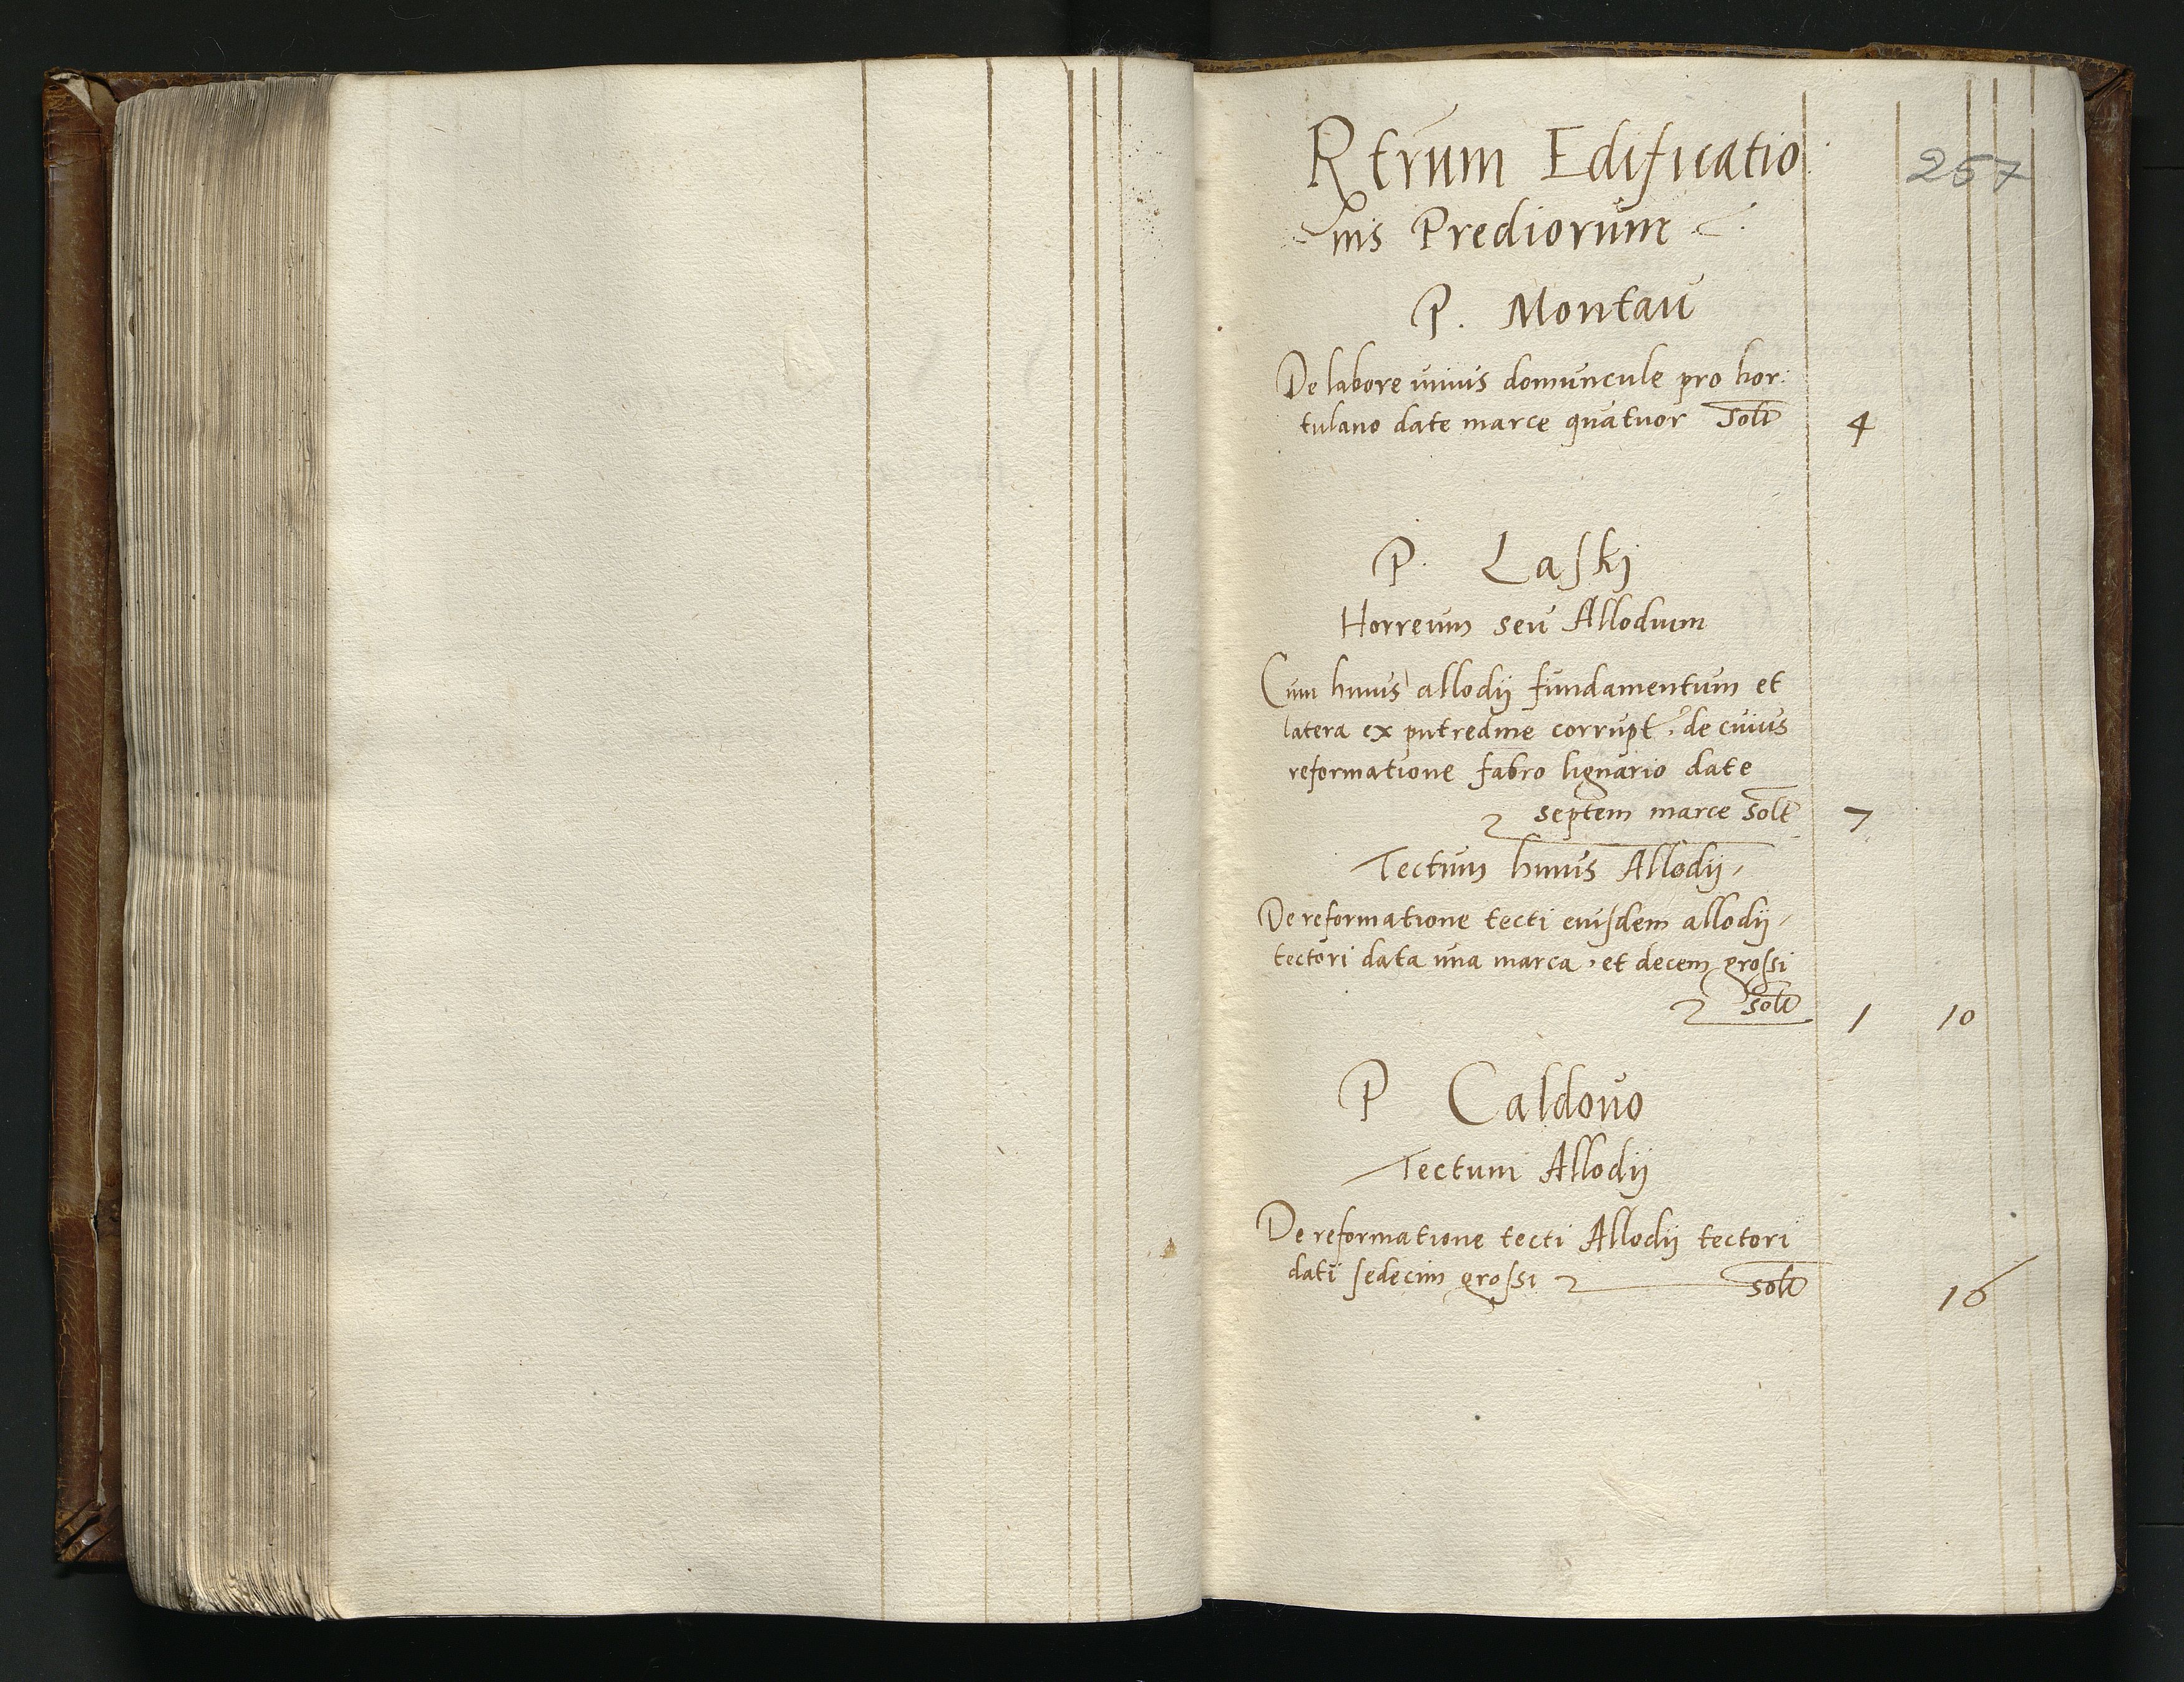 Rerum Edificatio
257
nis Prediorum
P. Montau
De labore unius domuncule pro hor:
tulano date marce quatuor Solt 4
P. Laskj
Horreum seu Allodium
Cum huius allodij fundamentum et
latera ex putredine corrupt. de cuius
reformatione fabro lignario date
septem marce Solt 7
Tectum huius Allodij
De reformatione tecti eiusdem allodij
tectori data una marca, et decem grossi
Solt 1 10
P Caldovo
Tectum Allodij
De reformatione tecti Allodij tectori
dati sedecim grossi solt 16